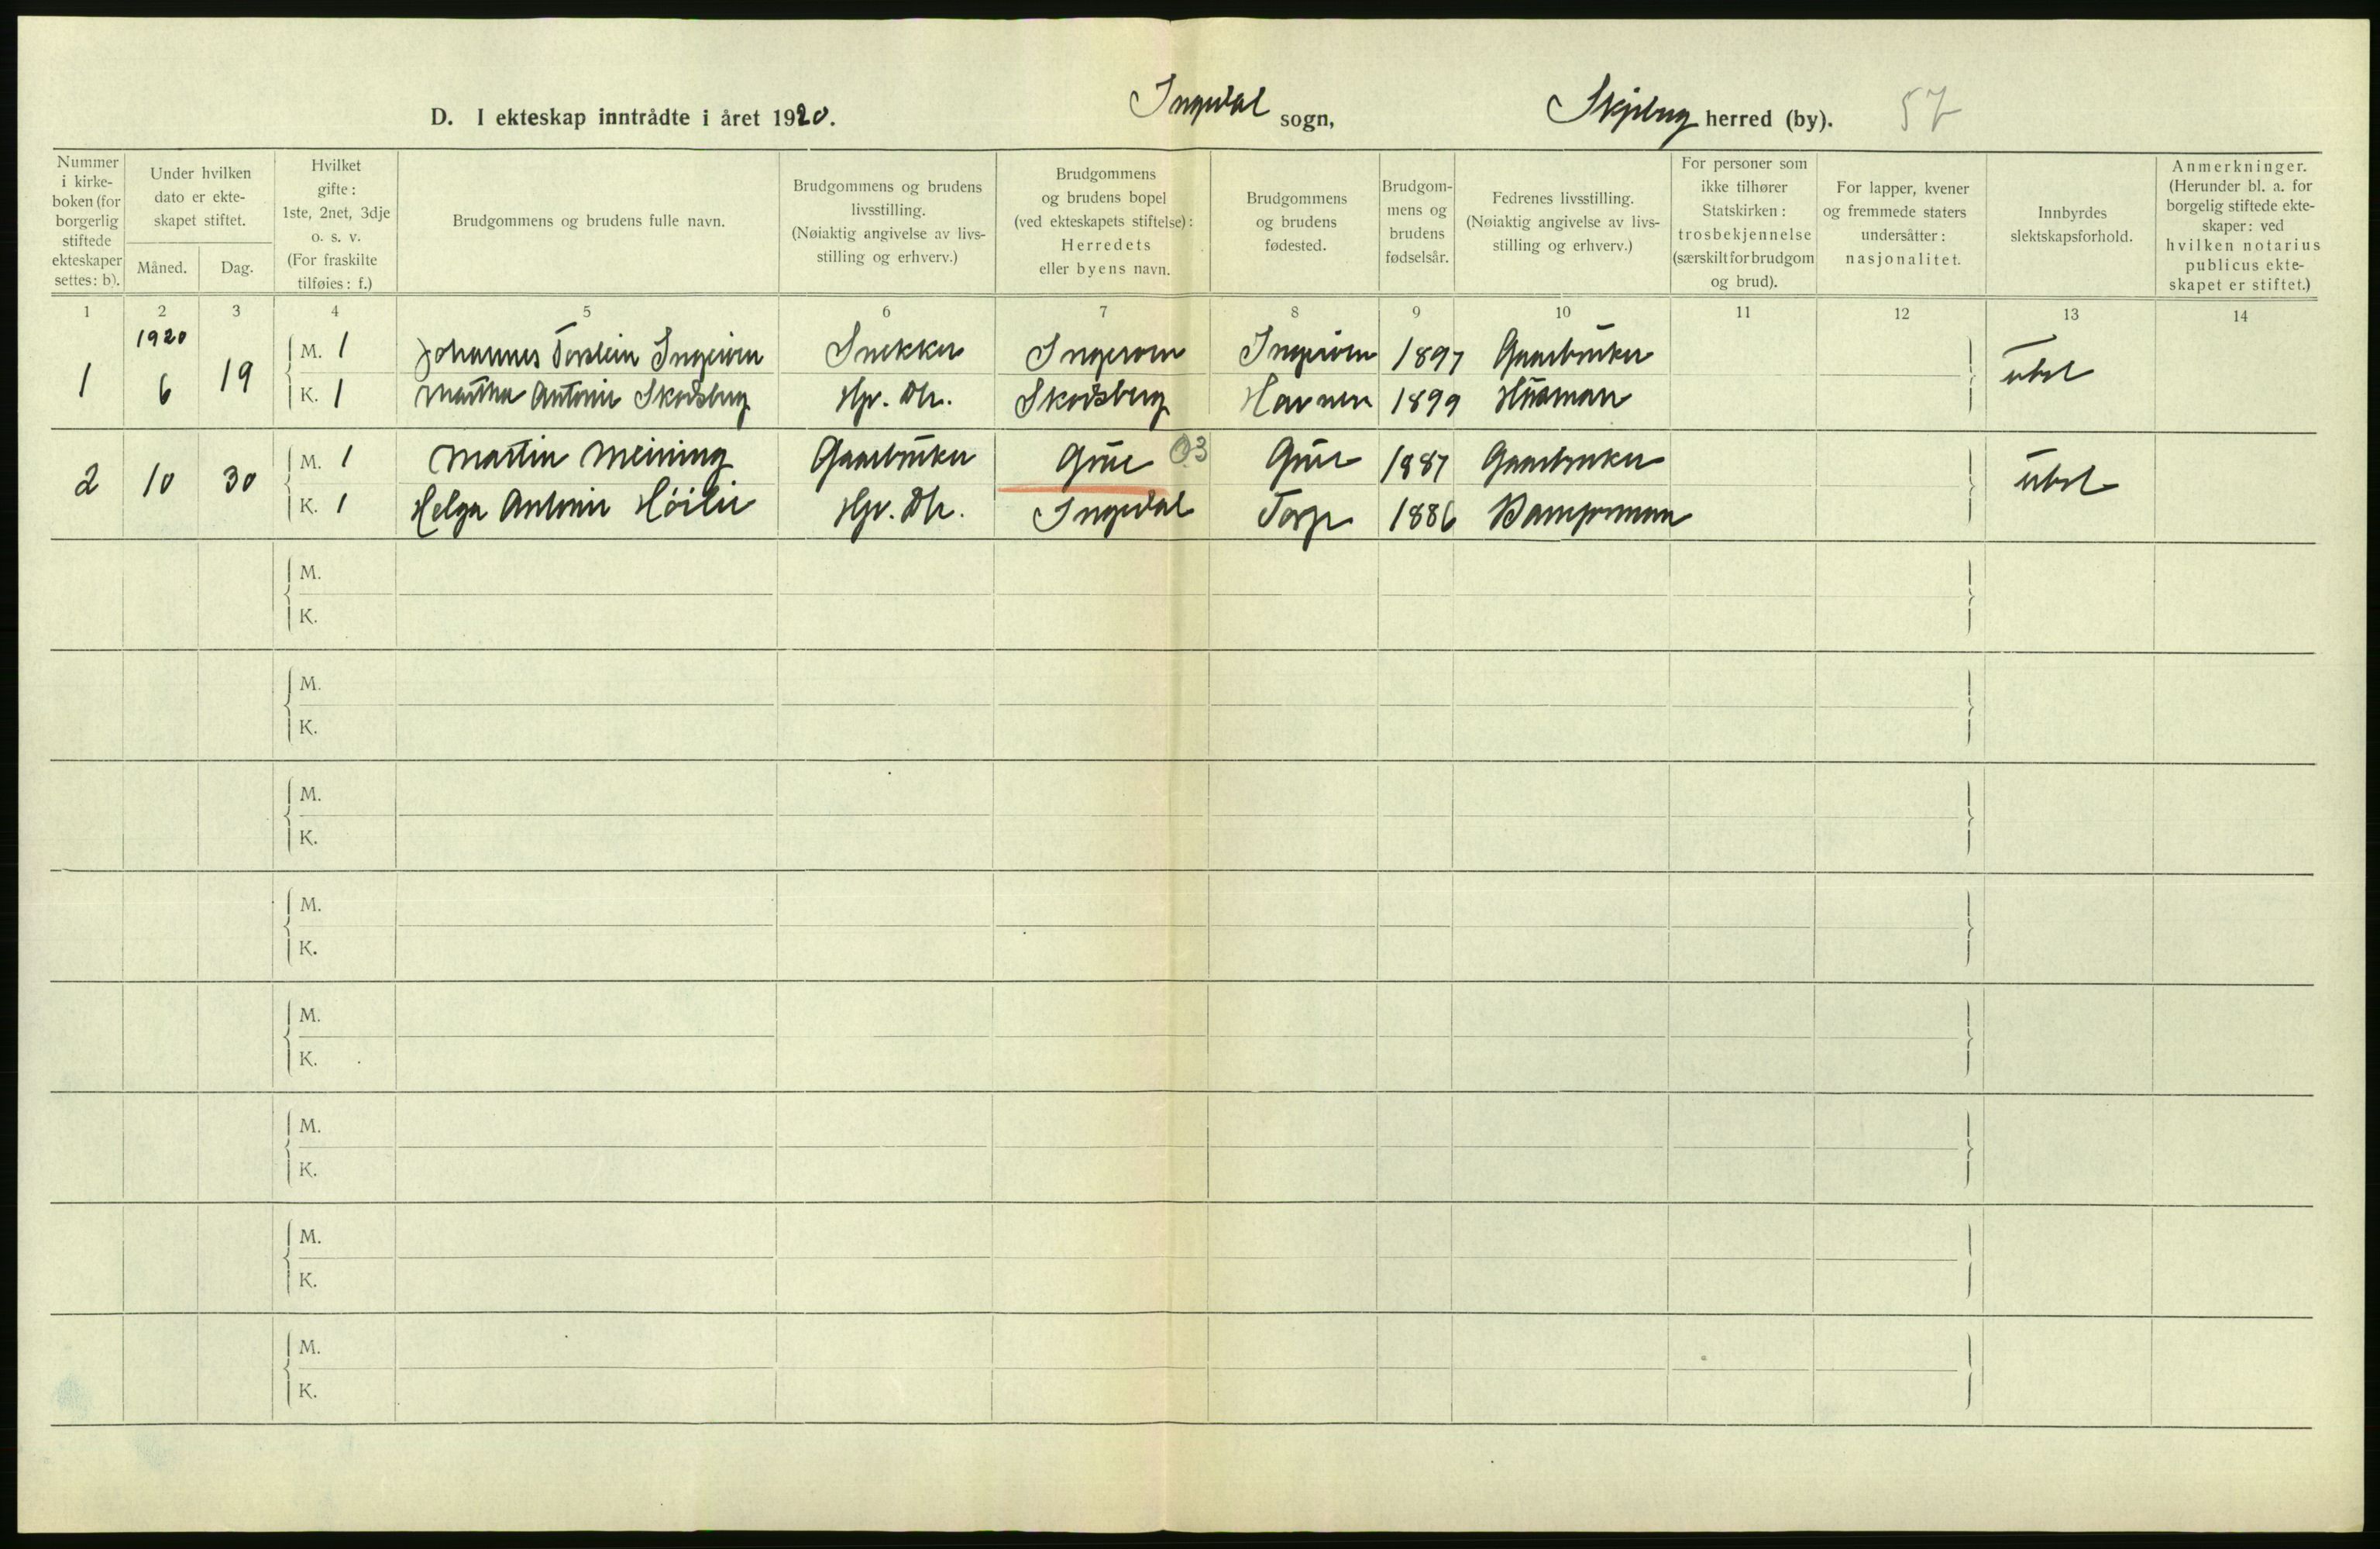 D. I ekteskap inntrådte i året 1920. Ingedal sogn, Skjeberg herred (by). 57
Nummer i kirke-boken (for borgerlig stiftede ekteskaper settes: b).
Under hvilken dato er ekte-skapet stiftet.
Måned. Dag.
Hvilket gifte: 1ste, 2net, 3dje o. s. v. (For fraskilte tilføies: f.)
Brudgommens og brudens fulle navn.
Brudgommens og brudens livsstilling. (Nøiaktig angivelse av livs-stilling og erhverv.)
Brudgommens og brudens bopel (ved ekteskapets stiftelse): Herredets eller byens navn.
Brudgommens og brudens fødested.
Brudgom-mens og brudens fødselsår.
Fedrenes livsstilling. (Nøiaktig angivelse av livs-stilling og erhverv.)
For personer som ikke tilhører Statskirken: trosbekjennelse (særskilt for brudgom og brud).
For lapper, kvener og fremmede staters undersåtter: nasjonalitet.
Innbyrdes slektskapsforhold.
Anmerkninger. (Herunder bl. a. for borgelig stiftede ekte-skaper: ved hvilken notarius publicus ekte-skapet er stiftet.)
1 2 3 4 5 6 7 8 9 10 11 12 13 14
1920
1 6 19 M. 1 Johannes Torstein Ingerøen Snekker Ingerøen Ingerøen 1897 Gaarbruker ubsl
K. 1 Martha Antonie Skodsberg Hp. Dtr. Skodsberg Havnen 1899 Husman
2 10 30 M. 1 Martin Meining Gaarbruker Grue 03 Grue 1887 Gaarbruker ubsl
K. 1 Helga Antonie Höilie Hp. Dtr. Ingedal Torp 1886
M.
K.
M.
K.
M.
K.
M.
K.
M.
K.
M.
K.
M.
K.
M.
K.